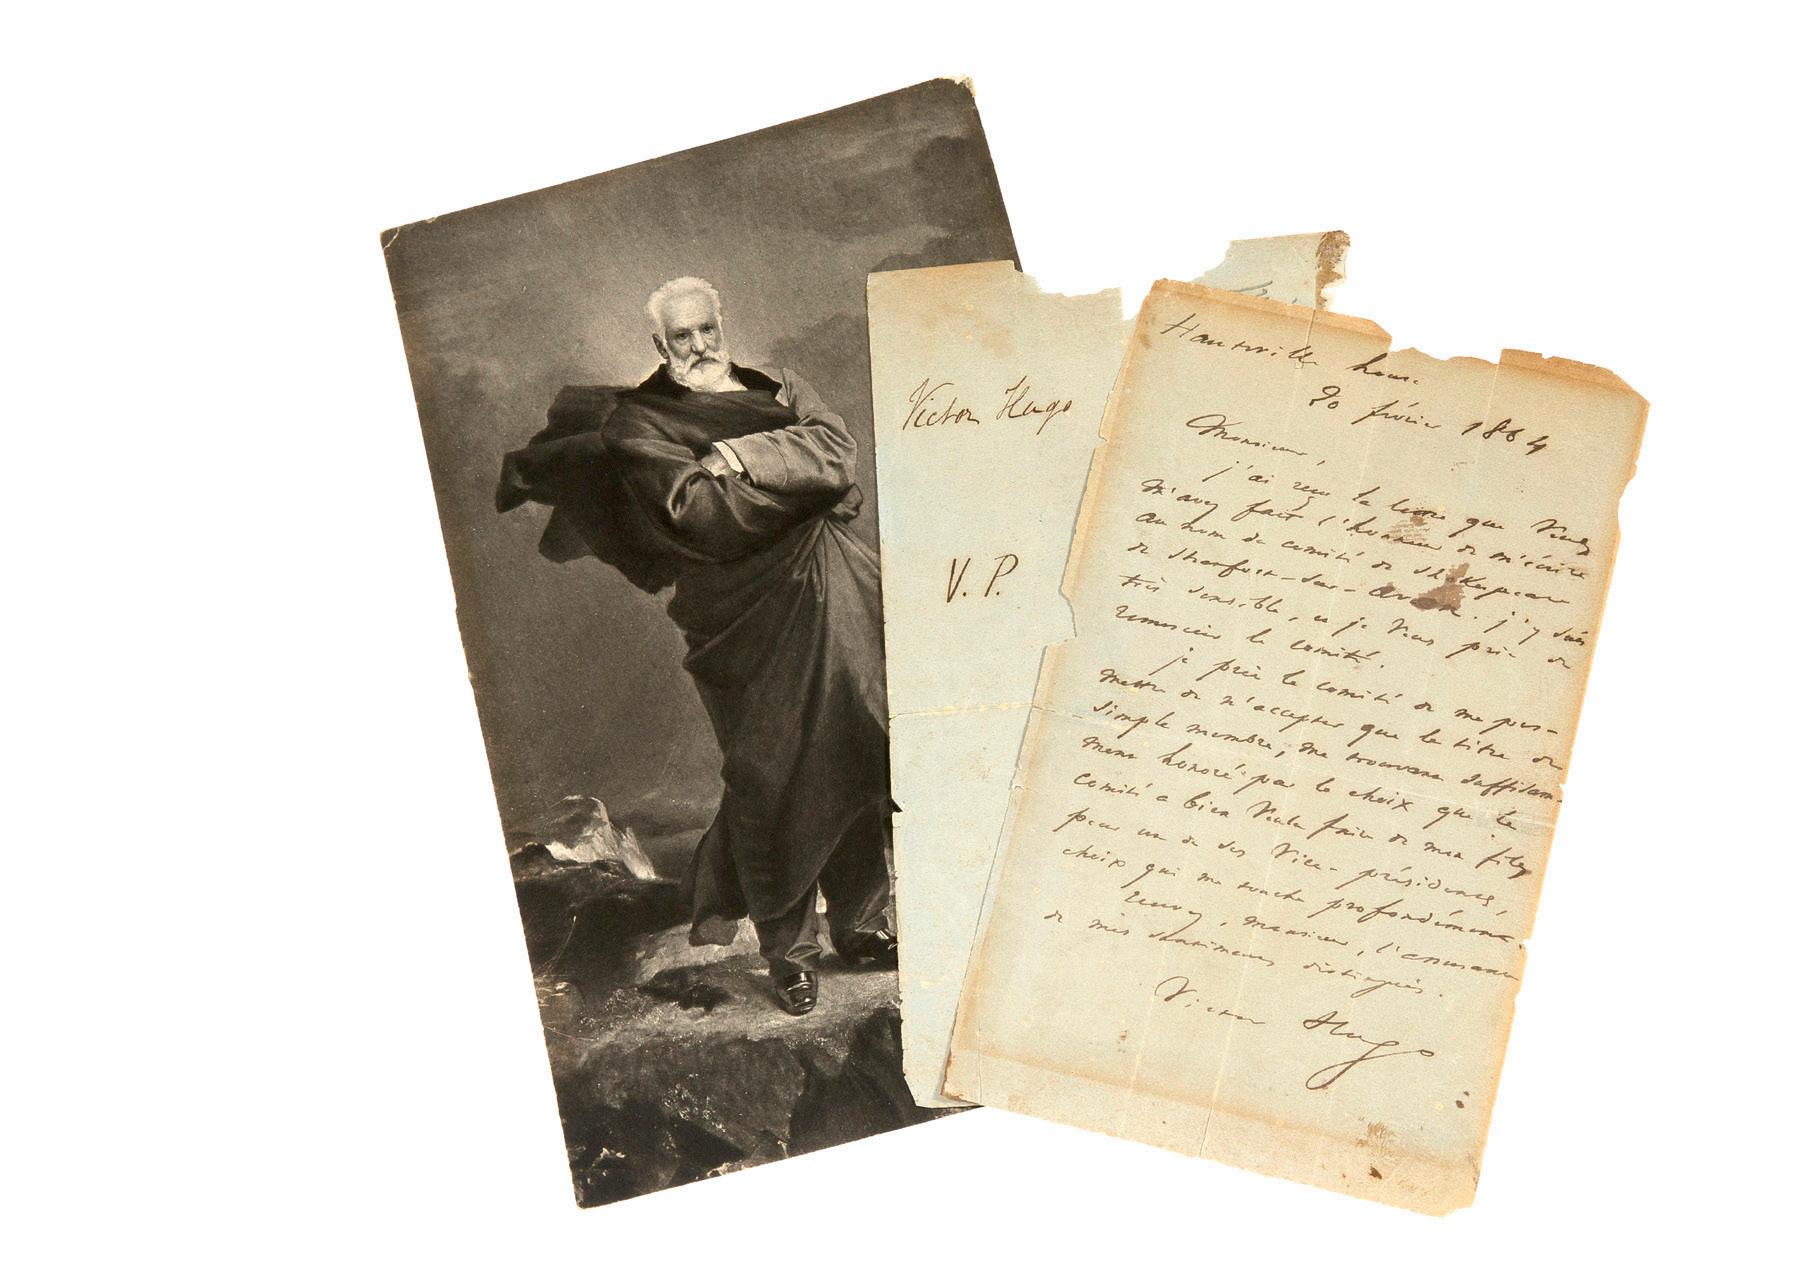 Victor Hugo
V. P.
Hauteville house
20 février 1864
Monsieur,
j'ai reçu la lettre que vous
m'avez fait l'honneur de m'écrire
au nom du comité de Shakespeare
de Stratford-sur-Avon. j'y suis
très sensible, et je vous prie de
remercier le comité.
je prie le comité de me per-
mettre de n'accepter que le titre de
simple membre, me trouvant suffisam-
ment honoré par le choix que le
comité a bien voulu faire de mon fils
pour un de ses Vice-présidents,
choix qui me touche profondément.
Recevez, monsieur, l'assurance
de mes sentiments distingués.
Victor Hugo